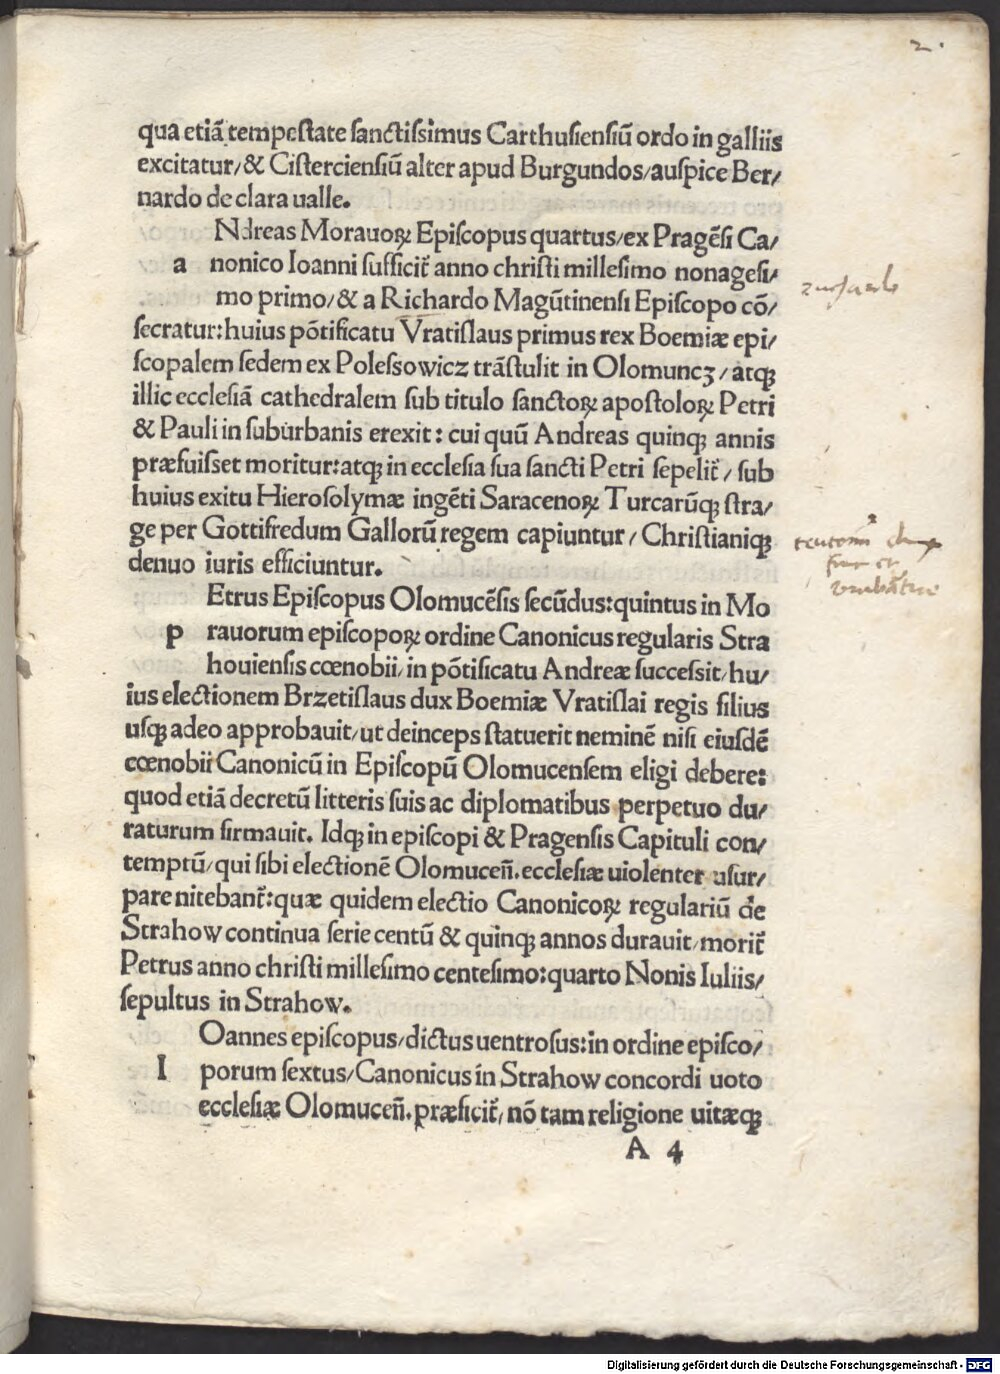 2.
qua etiā tempestate sanctissimus Carthusiensiū ordo in galliis
excitatur/& Cisterciensiū alter apud Burgundos/auspice Ber/
nardo de clara ualle.
Ndreas Morauoꝝ Episcopus quartus/ex Pragēsi Ca/
a nonico Ioanni sufficit᷑ anno christi millesimo nonagesi/
mo primo/& a Richardo Magūtinensi Episcopo cō/
secratur:huius pōtificatu Vratislaus primus rex Boemiæ epi/
scopalem sedem ex Polessowicz trāstulit in Olomuncz/atqꝫ
illic ecclesiā cathedralem sub titulo sanctoꝝ apostoloꝝ Petri
& Pauli in suburbanis erexit: cui quū Andreas quinqꝫ annis
præfuisset moritur:atqꝫ in ecclesia sua sancti Petri sepelit᷑/sub
huius exitu Hierosolymæ ingēti Saracenoꝝ Turcarūqꝫ stra/
ge per Gottifredum Gallorū regem capiuntur/Christianiqꝫ
denuo iuris efficiuntur.
Etrus Episcopus Olomucēsis secūdus:quintus in Mo
p rauorum episcopoꝝ ordine Canonicus regularis Stra
houiensis cœnobii/in pōtificatu Andreæ successit/hu/
ius electionem Brzetislaus dux Boemiæ Vratislai regis filius
usqꝫ adeo approbauit/ut deinceps statuerit neminē nisi eiusdē
cœnobii Canonicū in Episcopū Olomucensem eligi debere:
quod etiā decretū litteris suis ac diplomatibus perpetuo du/
raturum firmauit. Idqꝫ in episcopi & Pragensis Capituli con/
temptū/qui sibi electionē Olomuceñ.ecclesiæ uiolenter usur/
pare nitebant᷑:quæ quidem electio Canonicoꝝ regulariū de
Strahow continua serie centū & quinqꝫ annos durauit/morit᷑
Petrus anno christi millesimo centesimo:quarto Nonis Iuliis/
sepultus in Strahow.
Oannes episcopus/dictus uentrosus:in ordine episco/
I porum sextus/Canonicus in Strahow concordi uoto
ecclesiæ Olomuceñ.præficit᷑/nō tam religione uitæqꝫ
A 4
Digitalisierung gefördert durch die Deutsche Forschungsgemeinschaft - DFG